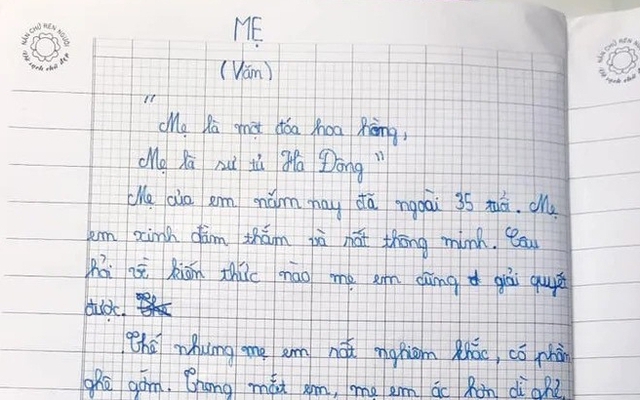 NẮN CHỮ RÈN NGƯỜI
MẸ
(Văn)
"Mẹ là một đóa hoa hồng,
Mẹ là sư tử Hà Đông"
Mẹ của em năm nay đã ngoài 35 tuổi. Mẹ
em xinh đằm thắm và rất thông minh. Câu
hỏi về kiến thức nào mẹ em cũng giải quyết
được.
Thế nhưng mẹ em rất nghiêm khắc, có phần
ghê gớm. Trong mắt em, mẹ em ác hơn dì ghẻ,